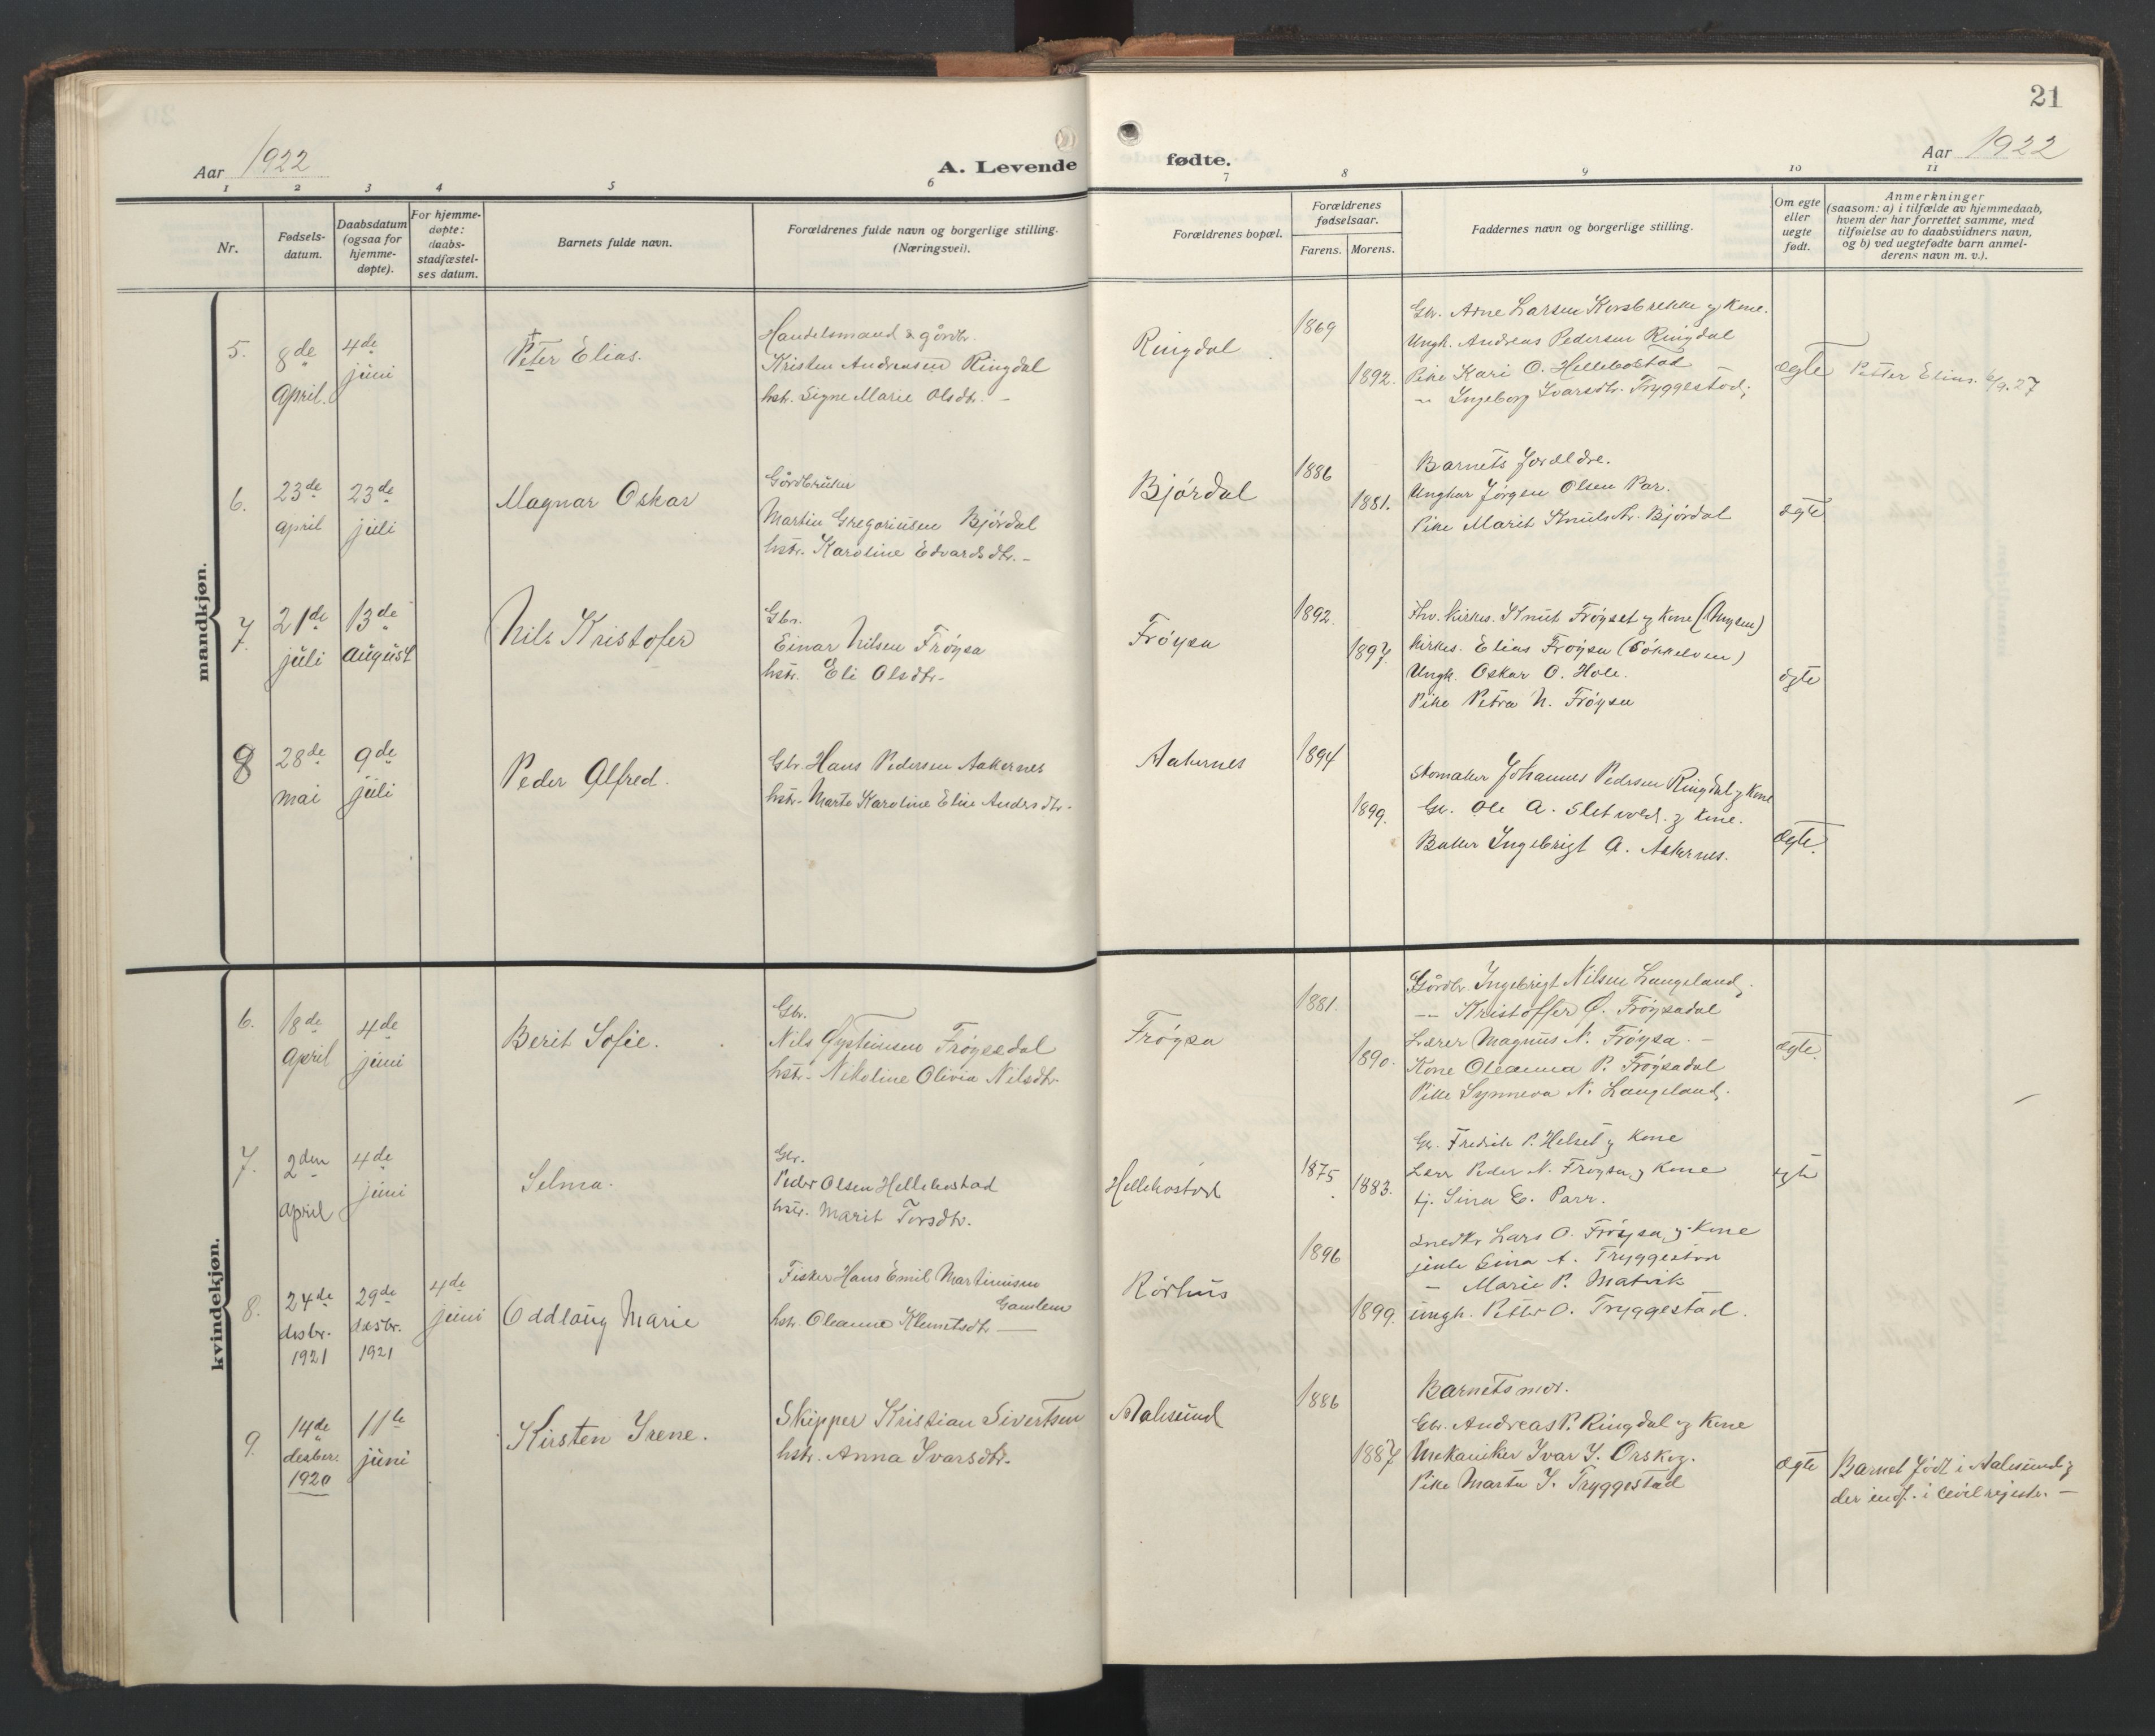 21
Aar 1922
A. Levende
fødte.
Aar 1922
1 2 3 4 5 6
7 8 9 10 11
Nr.
Fødsels-
datum.
Daabsdatum
(ogsaa for
hjemme-
døpte).
For hjemme-
døpte:
daabs-
stadfæstel-
ses datum.
Barnets fulde navn.
Forældrenes fulde navn og borgerlige stilling.
(Næringsvei).
Forældrenes bopæl.
Forældrenes
fødselsaar.
Farens. Morens.
Faddernes navn og borgerlige stilling.
Om egte
eller
uegte
født.
Anmerkninger
(saasom: a) i tilfælde av hjemmedaab,
hvem der har forrettet samme, med
tilføielse av to daabsvidners navn,
og b) ved uegtefødte barn anmel-
derens navn m. v.).
mandkjøn.
5.
8de
april.
4de
juni
Peter Elias.
Handelsmand & gårdbr.
Kristen Andreasen Ringdal
hstr. Signe Marie Olsdtr. -
Ringdal
1869
1892.
Gbr. Arne Larsen Korsbrekke og Kone.
Ungk. Andreas Pedersen Ringdal
Pike Kari O. Hellebostad
-„- Ingeborg Ivarsdtr. Tryggestad;
ægte
Petter Elias. 6/9.27
6.
23de
april
23de
juli
Magnar Oskar
Gårdbruker
Martin Gregoriusen Bjørdal
hstr. Karoline Edvardsdtr. -
Bjørdal
1886
1881.
Barnets forældre.
Ungkar Jørgen Olsen Par.
Pike Marit Knutsdtr. Bjørdal
ægte
7.
21de
juli
13de
august
Nils Kristofer
Gbr.
Einar Nilsen Frøysa
hstr. Eli Olsdtr.
Frøysa
1892.
1897.
Fhv. kirkes. Knut Frøyset og Kone
kirkes. Elias Frøysa (Søkkelven)
Ungk. Oskar O. Hole.
Pike Petra N. Frøysa
ægte
8
28de
mai
9de
juli
Peder Alfred.
Gbr. Hans Pedersen Aakernes
hstr. Marte Karoline Elie Andersdtr.
Aakernes
1894
1899.
Skomaker Johannes Pedersen Ringdal og Kone
Gbr. Ole A. Sletvold. og Kone.
Baker Ingebrigt A. Aakernes.
ægte.
kvindekjøn.
6.
18de
april
4de
juni
Berit Sofie.
Gbr.
Nils Øysteinsen Frøysedal
hstr. Nikoline Olivia Nilsdtr.
Frøysa
1881.
1890.
Gårdbr. Ingebrigt Nilsen Langeland,
-„- Kristoffer Ø. Frøysadal
Lærer Magnus N. Frøysa. -
Kone Oleanna P. Frøysadal
Pike Synneva N. Langeland.
ægte.
7.
2den
april
4de
juni
Selma.
Gbr.
Peder Olsen Hellebostad
hstr. Marit Torsdtr.
Hellebostad
1875
1883.
Gbr. Fredrik P. Helset og Kone
Lærer Peder N. Frøysa og Kone
tj. Sina E. Parr.
egte
8.
24de
desbr.
1921
29de
desbr.
1921
4de
juni
Oddlaug Marie
Fisker Hans Emil Martinusen
Gamlem
hstr. Oleanne Klemetsdtr -
Rørhus
1896
1899.
snedkr Lars O. Frøysa og Kone
jente Gina A. Tryggestad
- Marie P. Matvik
ungk. Petter O. Tryggestad.
9.
14de
desber.
1920
11te
juni
Kirsten Irene.
Skipper Kristian Sivertsen
hstr. Anna Ivarsdtr.
Aalesund
1886
1887
Barnets mor.
Gbr. Andreas P. Ringdal og Kone
Mekaniker Ivar I. Ørskog.
Pike Marta I. Tryggestad
ægte
Barnet født i Aalesund og
der indf. i Civilrejestr. -